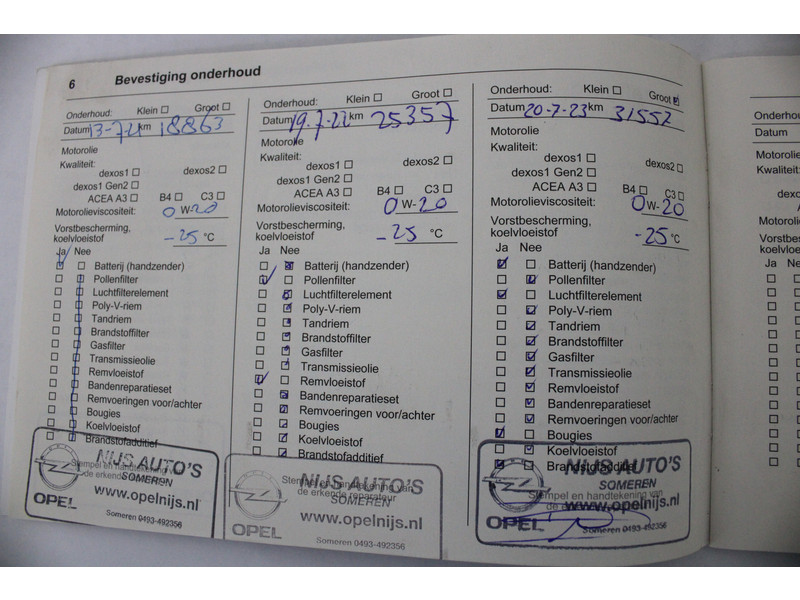 6 Bevestiging onderhoud
Onderhoud: Klein ☐ Groot ☐
Datum 13-7-21 km 18863
Motorolie
Kwaliteit:
dexos1 ☐ dexos2 ☐
dexos1 Gen2 ☐
ACEA A3 ☐ B4 ☐ C3 ☐
Motorolieviscositeit: 0 W-20
Vorstbescherming,
koelvloeistof -25 °C
Ja Nee
Batterij (handzender)
Pollenfilter
Luchtfilterelement
Poly-V-riem
Tandriem
Brandstoffilter
Gasfilter
Transmissieolie
Remvloeistof
Bandenreparatieset
Remvoeringen voor/achter
Bougies
Koelvloeistof
Brandstofadditief
NIJS AUTO'S
SOMEREN
Stempel en handtekening van
de erkende
www.opelnijs.nl
OPEL
Someren 0493-492356
Onderhoud: Klein ☐ Groot ☐
Datum 19.7-22 km 25357
Motorolie
Kwaliteit:
dexos1 ☐ dexos2 ☐
dexos1 Gen2 ☐
ACEA A3 ☐ B4 ☐ C3 ☐
Motorolieviscositeit: 0 W-20
Vorstbescherming,
koelvloeistof -25 °C
Ja Nee
Batterij (handzender)
Pollenfilter
Luchtfilterelement
Poly-V-riem
Tandriem
Brandstoffilter
Gasfilter
Transmissieolie
Remvloeistof
Bandenreparatieset
Remvoeringen voor/achter
Bougies
Koelvloeistof
Brandstofadditief
NIJS AUTO'S
Stempel en handtekening van
SOMEREN
de erkende reparateur
www.opelnijs.nl
OPEL
Someren 0493-492356
Onderhoud: Klein ☐ Groot ☑
Datum 20-7-23 km 31552
Motorolie
Kwaliteit:
dexos1 ☐ dexos2 ☐
dexos1 Gen2 ☐
ACEA A3 ☐ B4 ☐ C3 ☐
Motorolieviscositeit: 0 W-20
Vorstbescherming,
koelvloeistof -25 °C
Ja Nee
Batterij (handzender)
Pollenfilter
Luchtfilterelement
Poly-V-riem
Tandriem
Brandstoffilter
Gasfilter
Transmissieolie
Remvloeistof
Bandenreparatieset
Remvoeringen voor/achter
Bougies
Koelvloeistof
Brandstofadditief
NIJS AUTO'S
SOMEREN
Stempel en handtekening van
www.opelnijs.nl
OPEL
Someren 0493-492356
Datum
Kwaliteit:
Ja